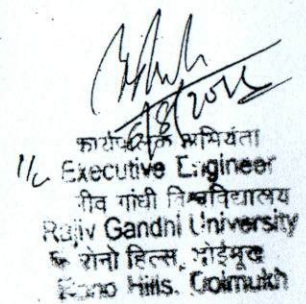 6/8/2022
कार्यपालक अभियंता
I/c Executive Engineer
राजीव गांधी विश्वविद्यालय
Rajiv Gandhi University
रोनो हिल्स, दोईमुख
Rono Hills, Doimukh